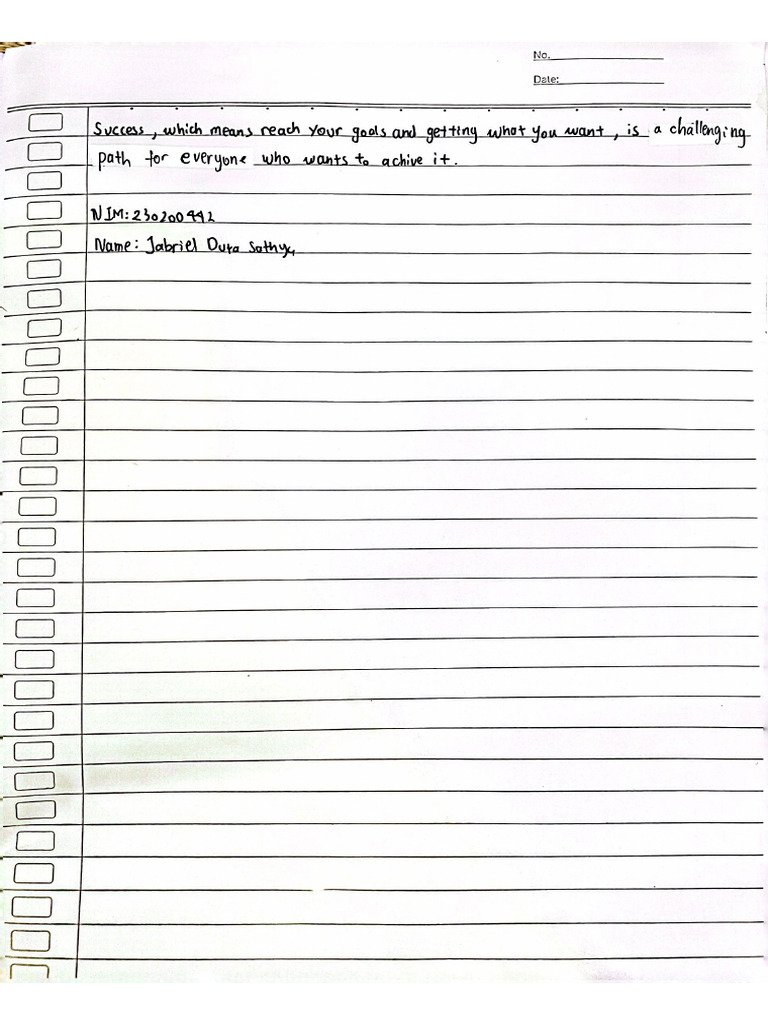 No.
Date:
Success, which means reach your goals and getting what you want, is a challenging
path for everyone who wants to achive it.
NIM: 230200442
Name: Jabriel Duta